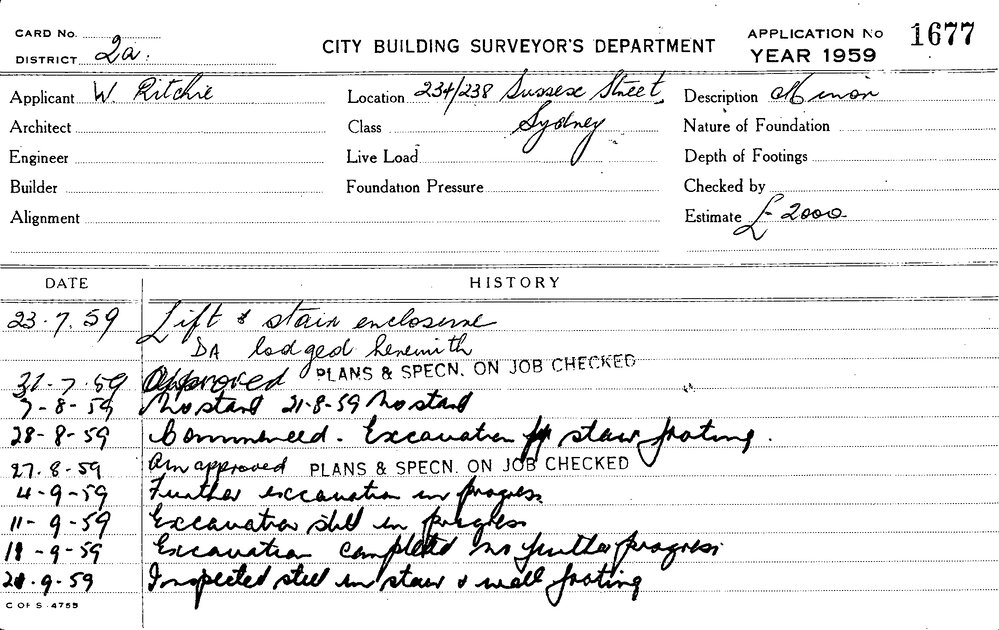 CARD No.
DISTRICT 2a.
CITY BUILDING SURVEYOR'S DEPARTMENT
APPLICATION No 1677
YEAR 1959
Applicant W. Ritchie
Location 234/238 Sussex Street, Sydney
Description Minor
Architect
Class
Nature of Foundation
Engineer
Live Load
Depth of Footings
Builder
Foundation Pressure
Checked by
Alignment
Estimate £ 2000
DATE HISTORY
23.7.59 Lift & stair enclosure
DA lodged herewith
31-7-59 Approved PLANS & SPECN. ON JOB CHECKED
7-8-59 No start 21-8-59 No start
28-8-59 Commenced. Excavation for stair footing.
27.8.59 Am approved PLANS & SPECN. ON JOB CHECKED
4-9-59 Further excavation in progress
11-9-59 Excavation still in progress
18-9-59 Excavation completed no further progress
-9-59 Inspected steel in stair & wall footing
C OF S 4755